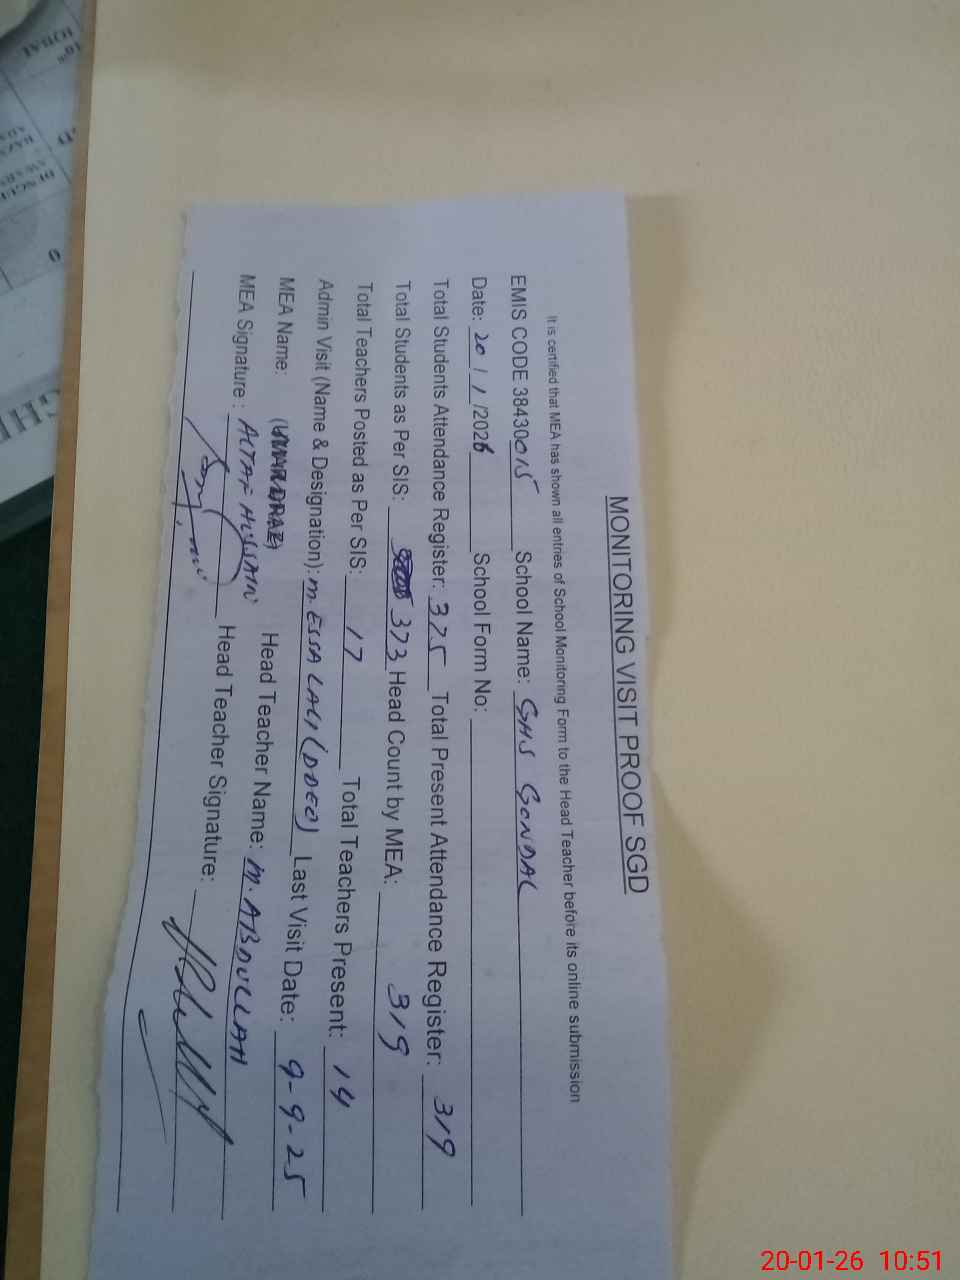 MONITORING VISIT PROOF SGD
It is certified that MEA has shown all entries of School Monitoring Form to the Head Teacher before its online submission
EMIS CODE 38430015 School Name: GHS GONDAL
Date: 20/1/2026 School Form No:
Total Students Attendance Register: 375 Total Present Attendance Register: 319
Total Students as Per SIS: 373 Head Count by MEA: 319
Total Teachers Posted as Per SIS: 17 Total Teachers Present: 14
Admin Visit (Name & Designation): M. ESSA LALI (DDEO) Last Visit Date: 9-9-25
MEA Name: (UMAR DRAZ) ALTAF HUSSAIN Head Teacher Name: M. ABDULLAH
MEA Signature: Head Teacher Signature:
20-01-26 10:51